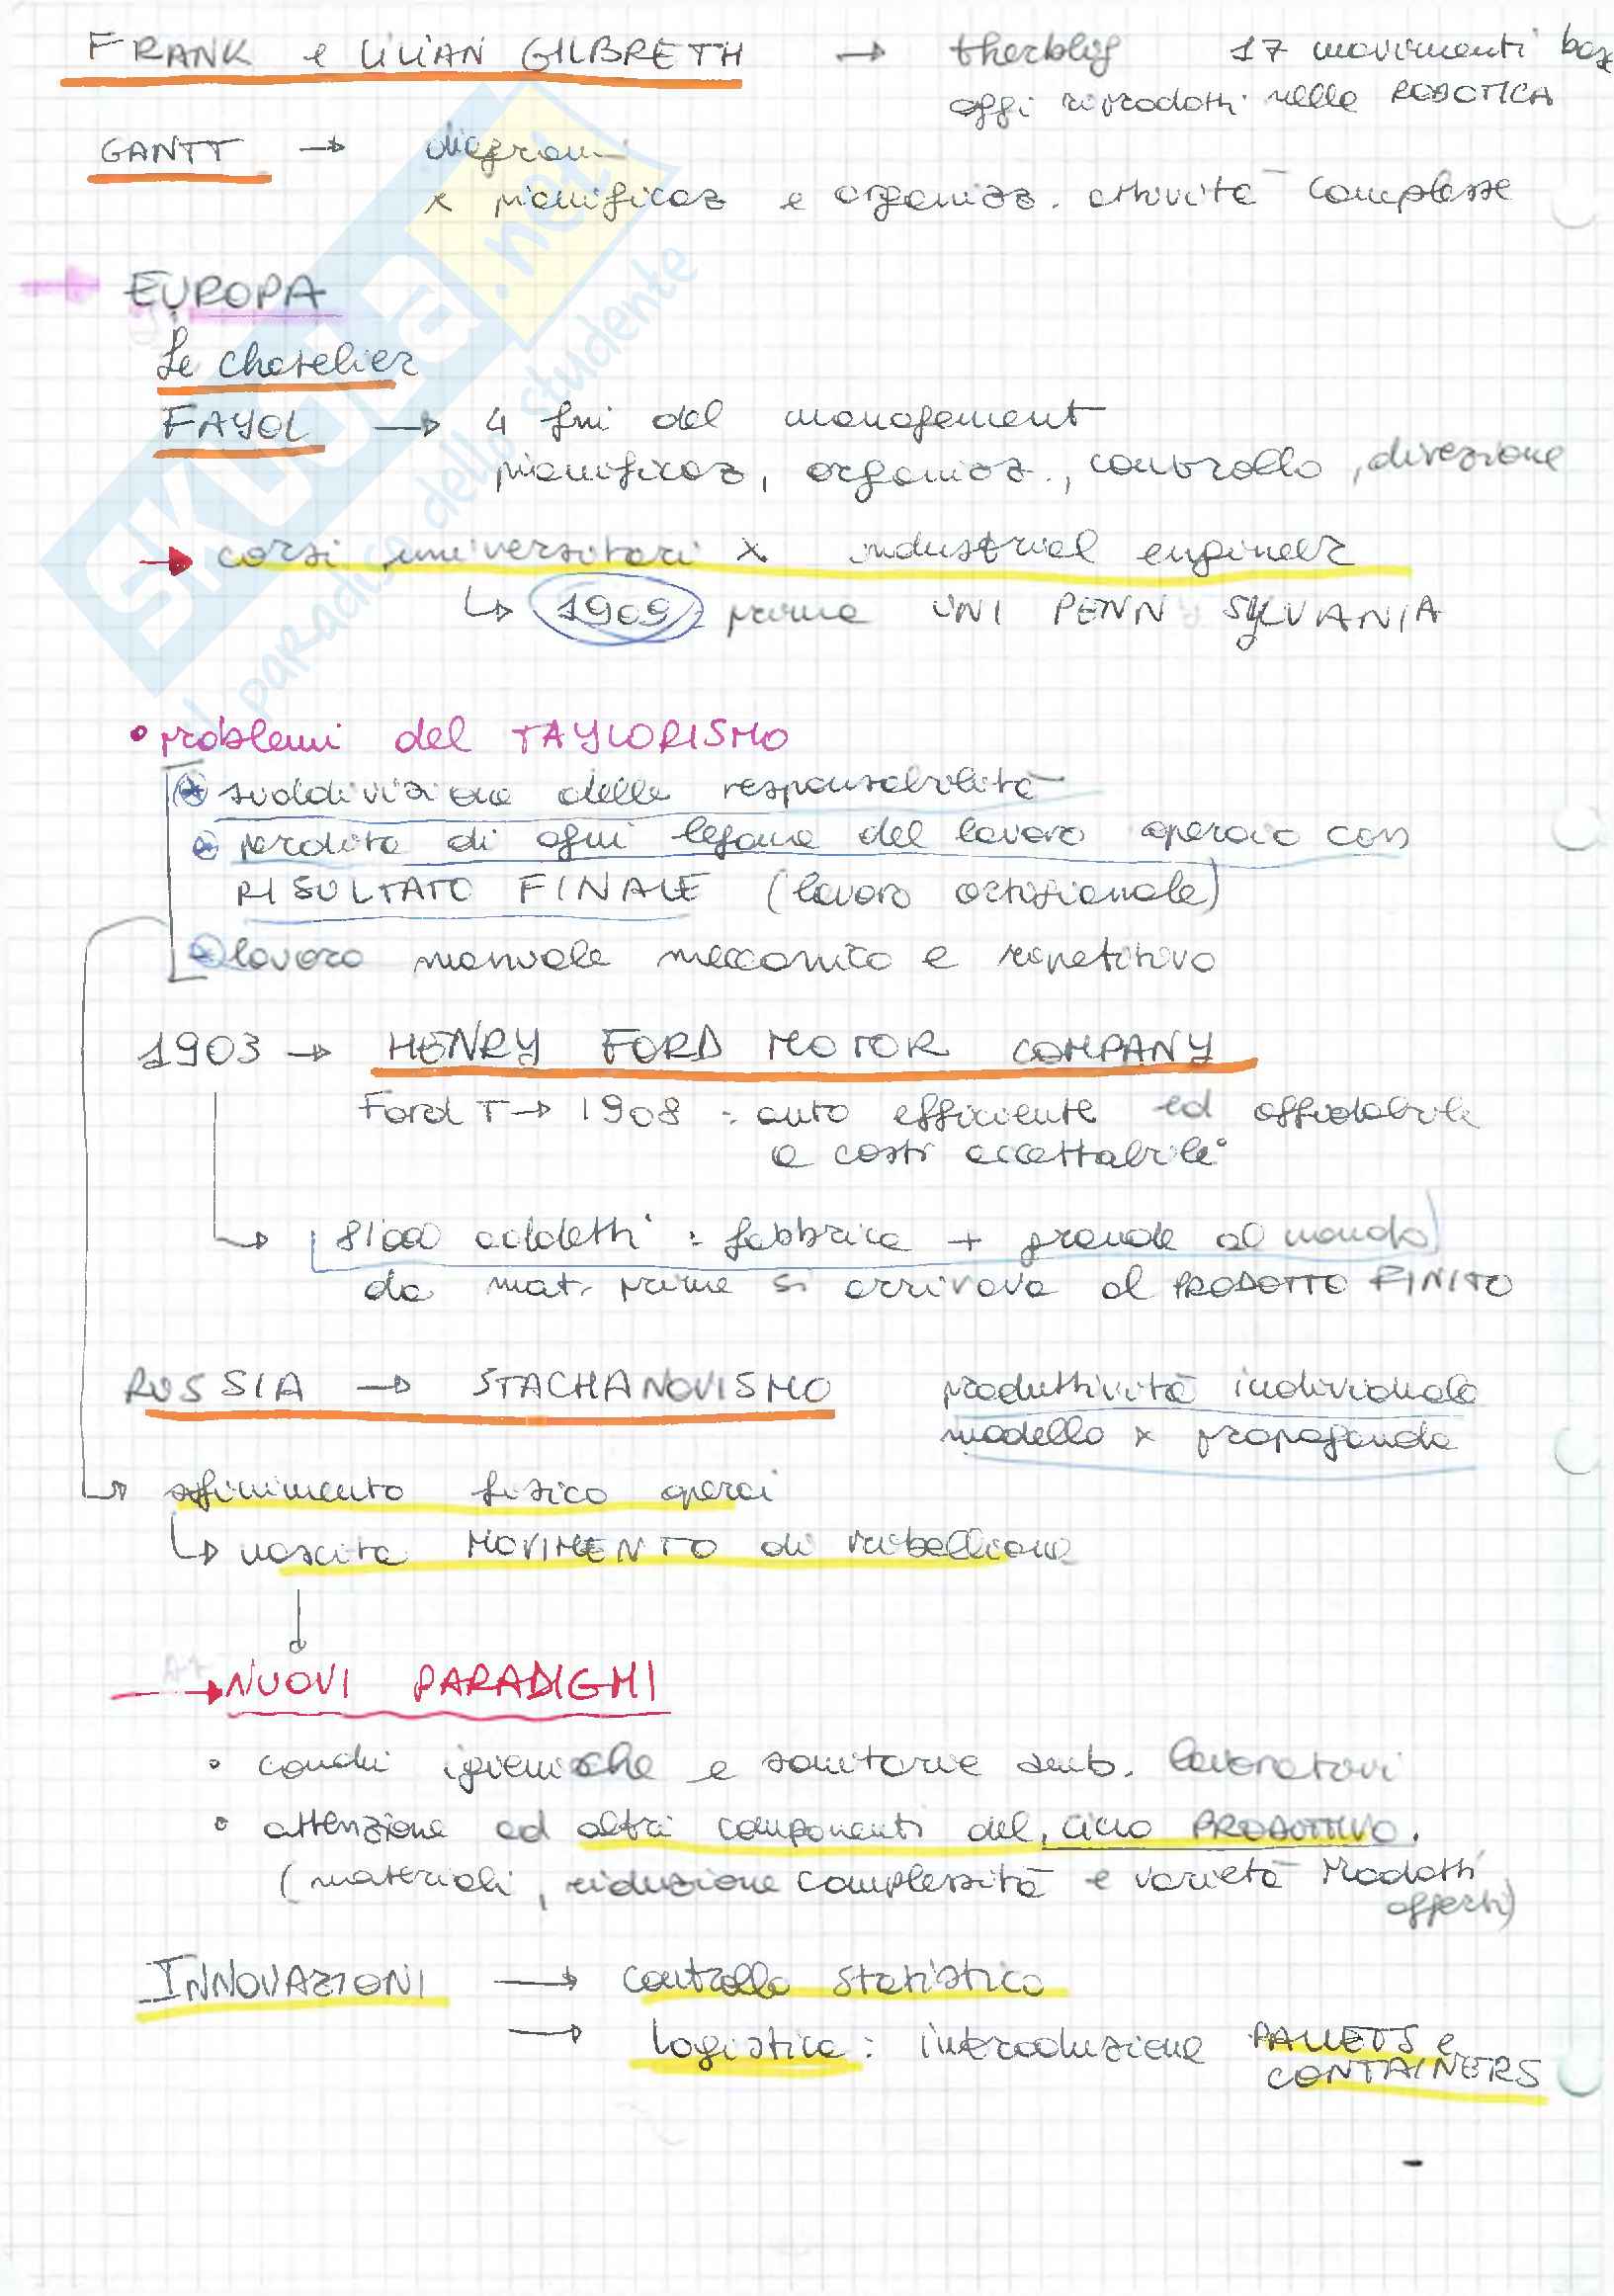 FRANK e LILIAN GILBRETH → therblig 17 movimenti base
oggi riprodotti nella ROBOTICA
GANTT → diagrammi
x pianificaz e organizz. attività complesse
→ EUROPA
Le Chatelier
FAYOL → 4 fini del management
pianificaz, organizz., controllo, direzione
→ corsi universitari x industrial engineer
↳ 1909: prima UNI PENNSYLVANIA
• problemi del TAYLORISMO
suddivisione delle responsabilità
perdita di ogni legame del lavoro operaio con
RISULTATO FINALE (lavoro artigianale)
lavoro manuale meccanico e ripetitivo
1903 → HENRY FORD MOTOR COMPANY
Ford T → 1908: auto efficiente ed affidabile
a costi accettabili
↳ 81'000 addetti: fabbrica + grande al mondo
da mat. prime si arrivava al PRODOTTO FINITO
RUSSIA → STACHANOVISMO produttività individuale
modello x propaganda
↳ sfinimento fisico operai
↳ nascita MOVIMENTO di ribellione
→ NUOVI PARADIGMI
• condiz igieniche e sanitarie amb. lavorativi
• attenzione ad altri componenti del CICLO PRODUTTIVO.
(materiali, riduzione complessità e varietà prodotti
offerti)
INNOVAZIONI → controllo statistico
→ logistica: introduzione PALLETS e
CONTAINERS
skuola.net
il paradiso dello studente